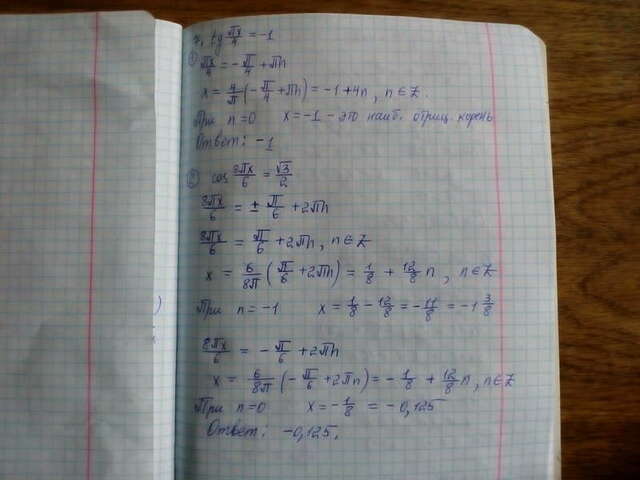 7. tg πx/4 = -1
① πx/4 = -π/4 + πn
x = 4/π (-π/4 + πn) = -1 + 4n, n ∈ Z.
При n=0 x = -1 - это наиб. отриц. корень
Ответ: -1
② cos 8πx/6 = √3/2
8πx/6 = ± π/6 + 2πn
8πx/6 = π/6 + 2πn, n ∈ Z
x = 6/8π (π/6 + 2πn) = 1/8 + 12/8 n, n ∈ Z
При n = -1 x = 1/8 - 12/8 = -11/8 = -1 3/8
8πx/6 = -π/6 + 2πn
x = 6/8π (-π/6 + 2πn) = -1/8 + 12/8 n, n ∈ Z
При n=0 x = -1/8 = -0,125
Ответ: -0,125.